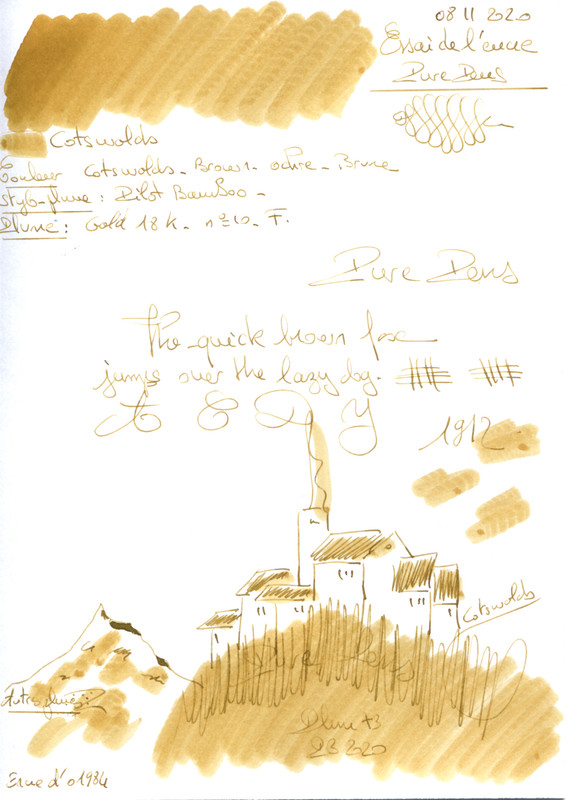 08 11 2020
Essai de l'encre
Pure Pens
Cotswolds
Couleur Cotswolds - Brown - ochre - Brune
Stylo-plume : Pilot Bamboo -
Plume : Gold 18 k - n° 10 - F.
Pure Pens
The quick brown fox
jumps over the lazy dog.
1912
Cotswolds
Pure Pens
Autres plumes
Plume
2020